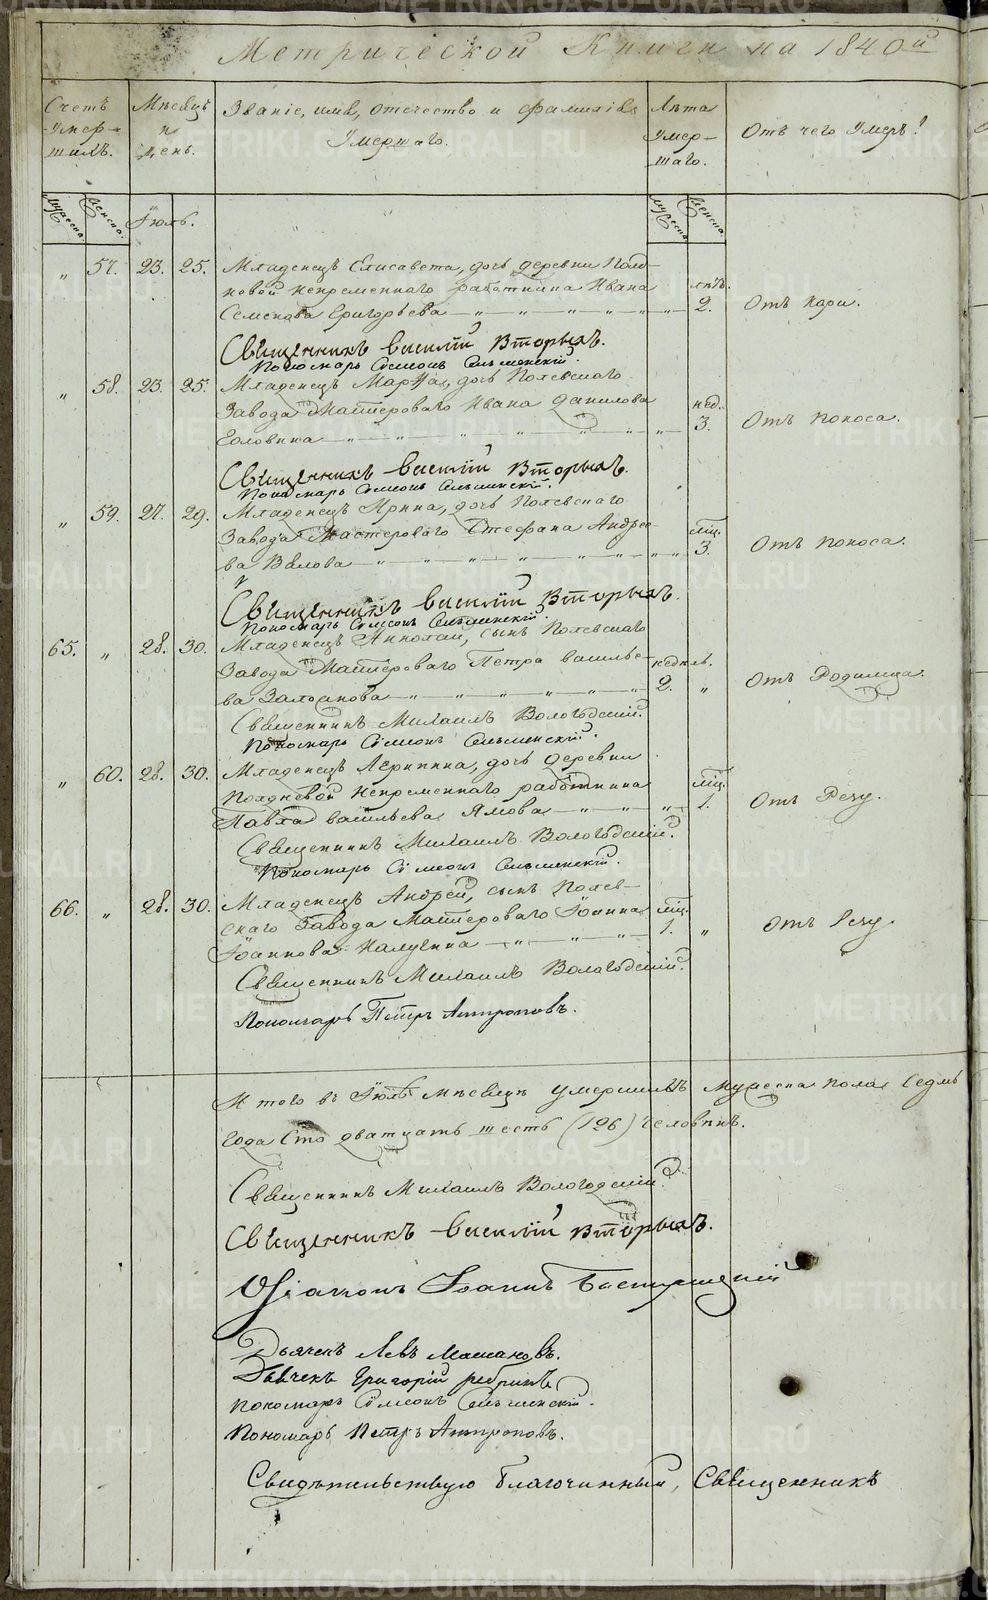 Метрической Книги на 1840й
Счетъ умер-шихъ.
Мѣсяцъ и день.
Званіе, имя, отечество и фамилія Умершаго.
Лѣта Умер-шаго.
Отъ чего Умеръ?
Мужеска. Женска. Іюль. Мужеска. Женска.
„ 57. 23. 25. Младенецъ Елисавета, дочь деревни Полд-
невой непременнаго работника Ивана лѣтъ.
Семенова Григорьева 2. Отъ Кори.
Священникъ Василій Вторыхъ.
Пономарь Сѵмеонъ Сельменскій.
„ 58. 23. 25. Младенецъ Марѳа, дочь Полевскаго
Завода Мастероваго Ивана Данилова нед.
Головина 3. Отъ поноса.
Священникъ Василій Вторыхъ.
Пономарь Сѵмеонъ Сельменскій.
„ 59. 27. 29. Младенецъ Ирина, дочь Полевскаго
Завода Мастероваго Стефана Андрее- мѣц.
ва Валова 3. Отъ поноса.
Священникъ Василій Вторыхъ.
Пономарь Сѵмеонъ Сельменскій.
65. „ 28. 30. Младенецъ Апполон, сынъ Полевскаго
Завода Мастероваго Петра Василье- недѣль.
ва Засосанова 2. „ Отъ Родимца.
Священникъ Михаилъ Вологодскій.
Пономарь Сѵмеонъ Сельменскій.
„ 60. 28. 30. Младенецъ Агрипина, дочь деревни
Полдневой непременнаго работника мѣц.
Павла Васильева Ямова „ 1. Отъ Резу.
Священникъ Михаилъ Вологодскій.
Пономарь Сѵмеонъ Сельменскій.
66. „ 28. 30. Младенецъ Андрей, сынъ Полев-
скаго Завода Мастероваго Іоанна мѣц.
Іоаннова Калугина 1. „ Отъ Резу.
Священникъ Михаилъ Вологодскій.
Пономарь Петръ Антроповъ.
Итого въ Іюлѣ мѣсяцѣ умершихъ мужеска пола Седмь
года Сто дватцать шесть (126) человѣкъ.
Священникъ Михаилъ Вологодскій.
Священникъ Василій Вторыхъ.
Діаконъ Іоаннъ
Дьячекъ Левъ
Дьячекъ Григорій
Пономарь Сѵмеонъ Сельменскій.
Пономарь Петръ Антроповъ.
Свидѣтельствую Благочинный, Священникъ
METRIKI.GASO-URAL.RU